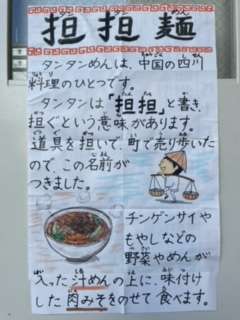 担担麺
タンタンめんは、中国の四川
料理のひとつです。
タンタンは「担担」と書き、
担ぐという意味があります。
道具を担いで、町で売り歩いた
ので、この名前が
つきました。
チンゲンサイや
もやしなどの
野菜やめんが
入った汁めんの上に、味付け
した肉みそをのせて食べます。